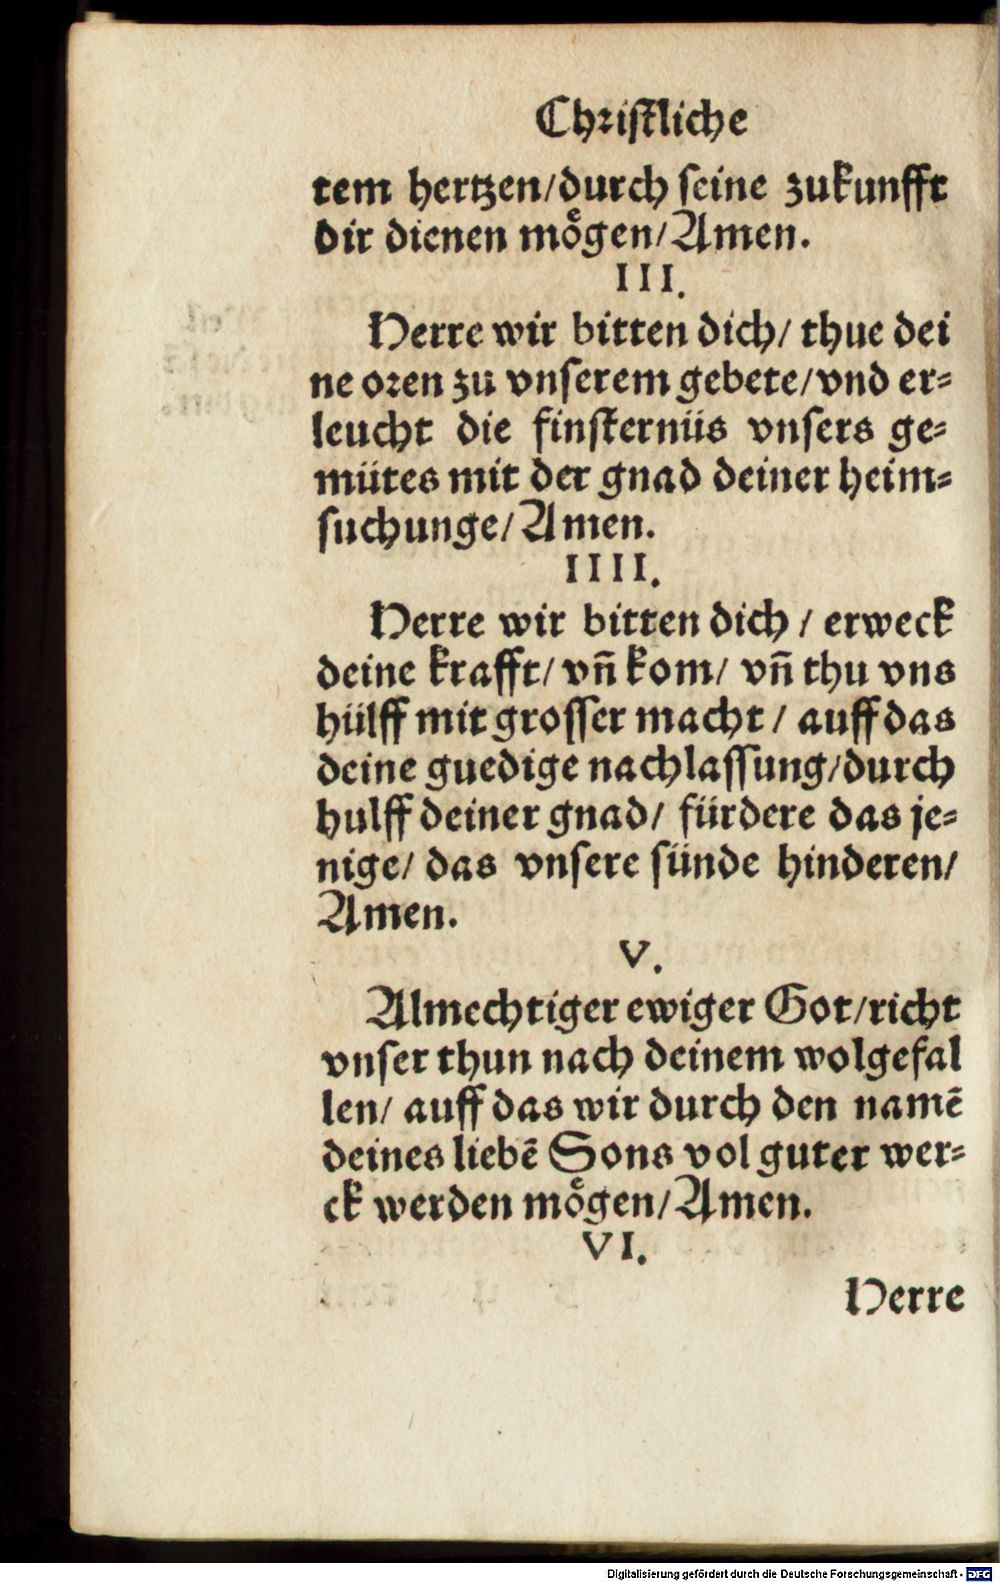 Christliche
tem hertzen/durch seine zukunfft
dir dienen moͤgen/Amen.
III.
Herre wir bitten dich/ thue dei
ne oren zu vnserem gebete/vnd er-
leucht die finsternüs vnsers ge-
mütes mit der gnad deiner heim-
suchunge/Amen.
IIII.
Herre wir bitten dich / erweck
deine krafft/ vñ kom/ vñ thu vns
hülff mit grosser macht / auff das
deine guedige nachlassung/durch
hulff deiner gnad/ fürdere das je-
nige/ das vnsere sünde hinderen/
Amen.
V.
Almechtiger ewiger Got/richt
vnser thun nach deinem wolgefal
len/ auff das wir durch den namẽ
deines liebẽ Sons vol guter wer-
ck werden moͤgen/Amen.
VI.
Herre
Digitalisierung gefördert durch die Deutsche Forschungsgemeinschaft - DFG